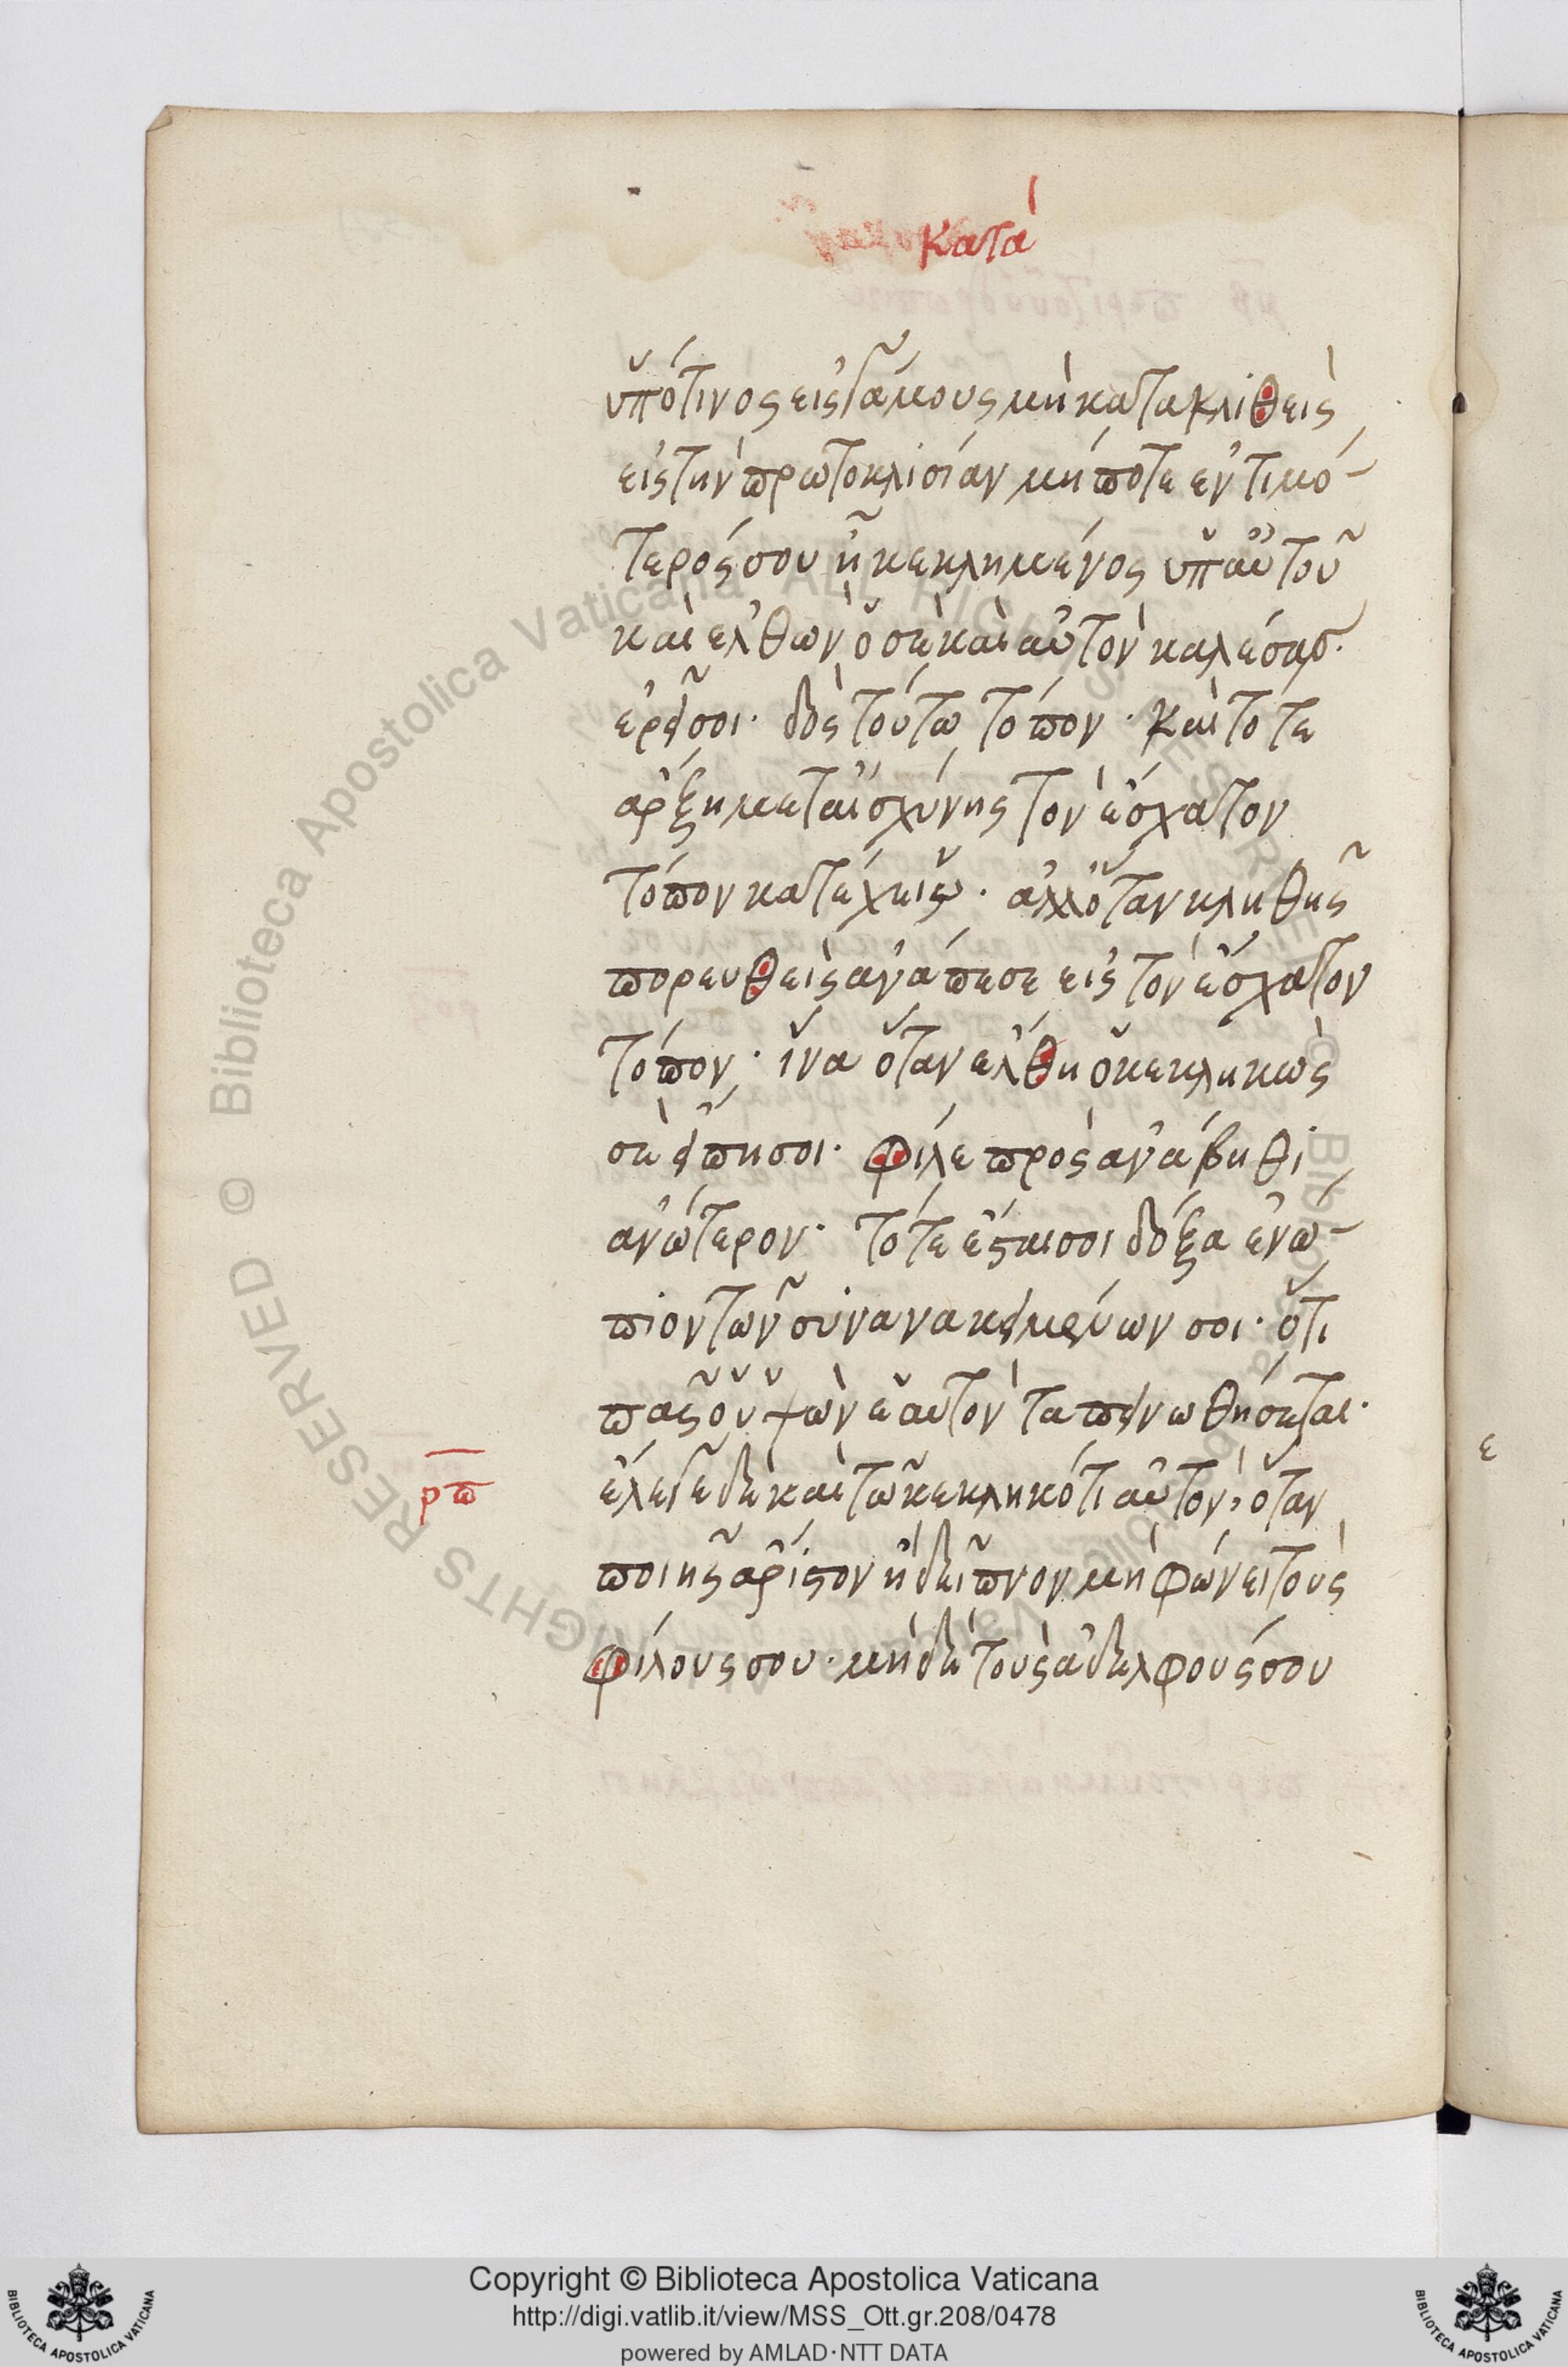 κατὰ
ὑπό τινος εἰς γάμους μὴ κατακλιθεὶς
εἰς τὴν πρωτοκλισίαν μήποτε ἐντιμό-
τερός σου ἦ κεκλημένος ὑπ αὐτοῦ
καὶ ἐλθὼν ὁ σὲ καὶ αὐτὸν καλέσας.
ἐρεῖ σοι· δὸς τούτω τόπον· καὶ τότε
ἄρξη μετ αἰσχύνης τὸν ἔσχατον
τόπον κατέχειν· ἀλλ ὅταν κληθῆς
πορευθεὶς ἀνάπεσε εἰς τὸν ἔσχατον
τόπον· ἵνα ὅταν ἔλθη ὁ κεκληκὼς
σὲ εἴπη σοι· φίλε πρὸς ἀνάβηθι
ἀνώτερον· τότε ἔσται σοι δόξα ἐνώ-
πιον τῶν συνανακειμένων σοι· ὅτι
πᾶς ὁ ὑψῶν ἑαυτὸν ταπεινωθήσεται·
ρπ
ἔλεγε δὲ καὶ τῶ κεκληκότι αὐτὸν, ὅταν
ποιῆς ἄριστον ἢ δεῖπνον μὴ φώνει τοὺς
φίλους σου· μὴ δὲ τοὺς ἀδελφούς σου
ε
© Biblioteca Apostolica Vaticana ALL RIGHTS RESERVED
© Biblioteca Apostolica Vaticana ALL RIGHTS RESERVED
Copyright © Biblioteca Apostolica Vaticana
http://digi.vatlib.it/view/MSS_Ott.gr.208/0478
powered by AMLAD·NTT DATA
BIBLIOTECA APOSTOLICA VATICANA
BIBLIOTECA APOSTOLICA VATICANA